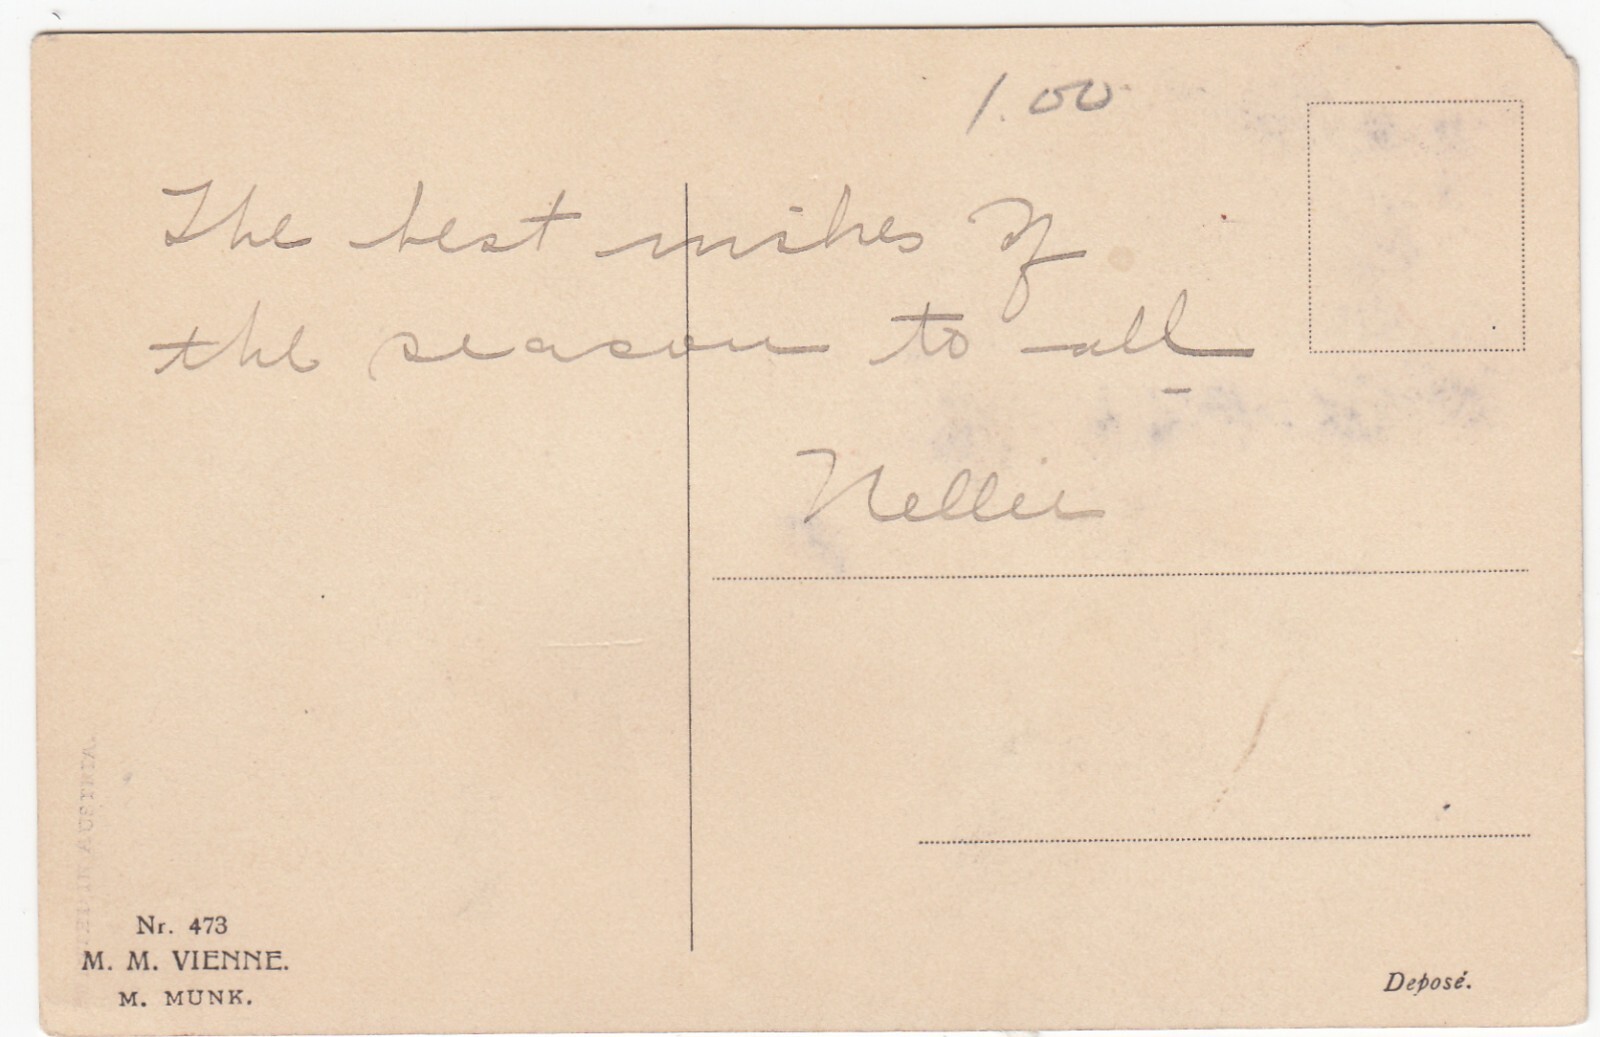 1.00
The best wishes of
the season to all
Nellie
IN AUSTRIA.
Nr. 473
M. M. VIENNE.
M. MUNK.
Deposé.